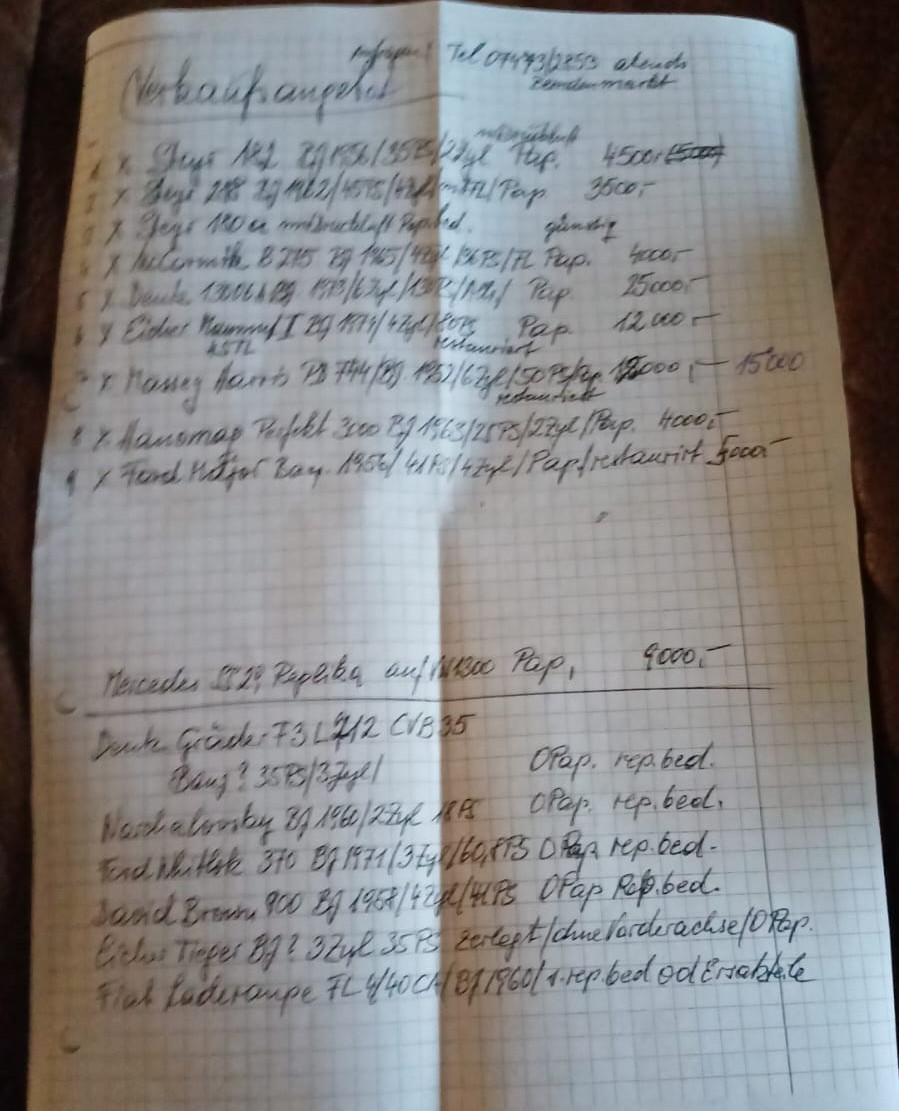 Anfragen! Tel 07473/2853 abends
Verkaufsangebot
Zemdenmarkt
mit Druckluft
1 X Steyr 182 Bj 1956/35PS/2Zyl Pap. 4500,-
2 X Steyr 218 Bj 1962/45PS/4Zyl/mFL/Pap. 3500,-
3 X Steyr 180a mitDruckluft Rep.bed. günstig
4 X McCormik B 275 Bj 1965/4Zyl/36PS/FL Pap. 4000,-
5 X Deutz 13006A Bj. 1973/6Zyl/130PS/ Pap. 25000,-
6 X Eicher Mammut I Bj 1974/4Zyl/80PS Pap. 12000,-
restauriert
7 X Massey Harris PD 744/Bj. 1952/6Zyl/50PS/Pap. 15000,- 15000
restauriert
8 X Hanomag Perfekt 3000 Bj 1963/25PS/2Zyl/Pap. 4000,-
9 X Ford Major Bauj. 1956/41PS/4Zyl/Pap/restaurirt 5000,-
Mercedes SS29 Replika auf 1300 Pap, 9000,-
Deutz Gräder F3L712 CVB35
Bauj? 35PS/3Zyl/ OPap. rep.bed.
Bj 1960/2Zyl 18PS OPap. rep.bed.
Ford 370 Bj 1971/3Zyl/60,8PS OPap rep.bed.
David Brown 900 Bj 1958/4Zyl/41PS OPap Rep.bed.
Eicher Tieger Bj? 3Zyl 35PS zerlegt/ohneVorderachse/OPap.
Fiat Laderaupe FL4/40CA/Bj 1960/1.rep.bed od Ersatzteile